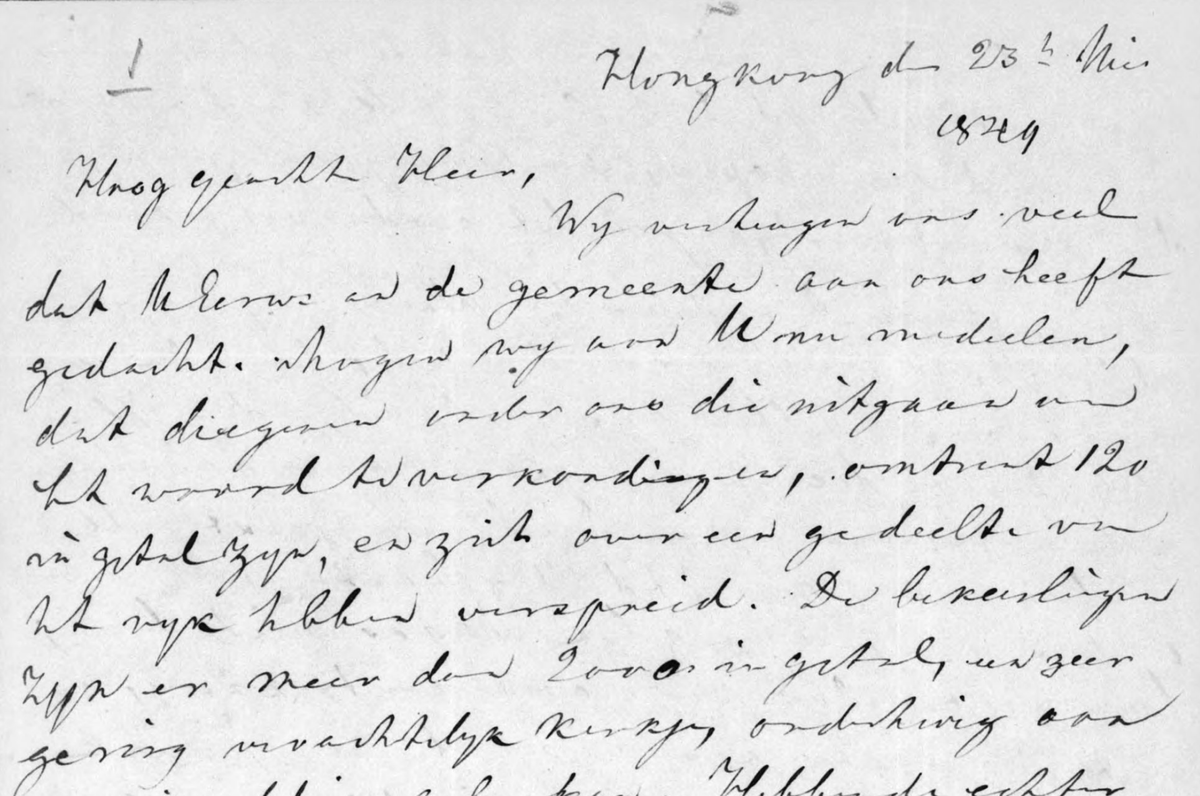 1
Hongkong den 23th Mei
1849
Hoog geachte Heer,
Wij verheugen ons veel
dat UEerw: en de gemeente aan ons heeft
gedacht. Mogen wij aan U nu mededeelen,
dat diegenen onder ons die uitgaan om
het woord te verkondigen, omtrent 120
in getal zijn, en zich over een gedeelte van
het rijk hebben verspreid. De bekeerlingen
zijn er meer dan 2000 in getal, een zeer
gering verachtelijk kerkje, onderhevig aan
Hebben de echter